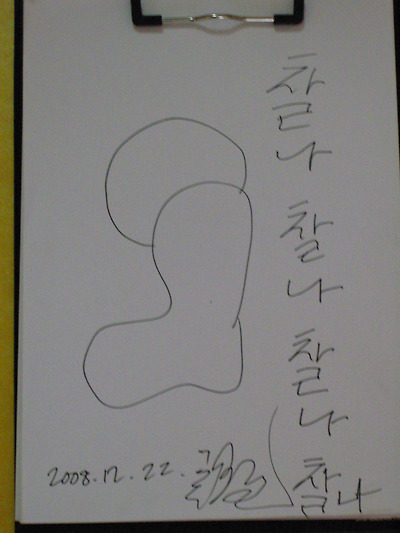 찰나 찰나 찰나 참나
2008.12.22.